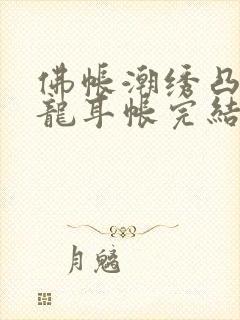 佛帐潮绣凸
龍耳帐完結
月魑